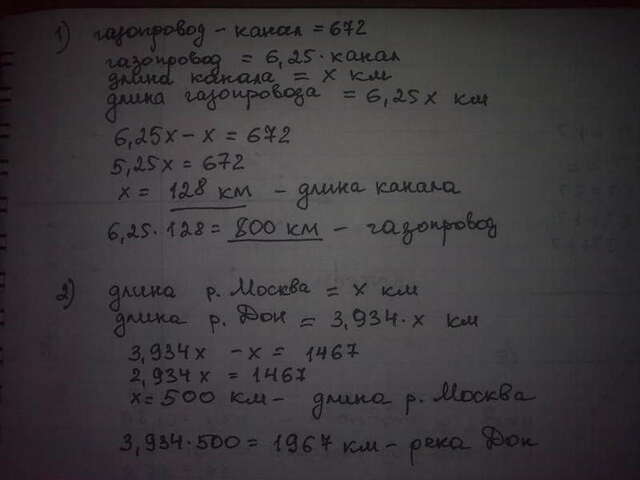 1) газопровод - канал = 672
газопровод = 6,25 · канал
длина канала = х км
длина газопровода = 6,25х км
6,25х - х = 672
5,25х = 672
х = 128 км - длина канала
6,25 · 128 = 800 км - газопровод
2) длина р. Москва = х км
длина р. Дон = 3,934 · х км
3,934х - х = 1467
2,934х = 1467
х = 500 км - длина р. Москва
3,934 · 500 = 1967 км - река Дон